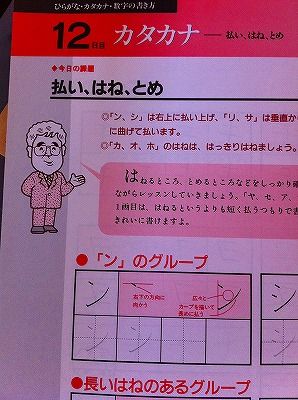 ひらがな・カタカナ・数字の書き方
12日目 カタカナ── 払い、はね、とめ
◆今日の課題
払い、はね、とめ
◎「ン、シ」は右上に払い上げ、「リ、サ」は垂直か
に曲げて払います。
◎「カ、オ、ホ」のはねは、はっきりはねましょう。
はねるところ、とめるところなどをしっかり確
ながらレッスンしていきましょう。「ヤ、セ、ア、
1画目は、はねるというよりも短く払うつもりで書
きれいに書けますよ。
●「ン」のグループ
ン
右下の方向に
向かう
広々と
カーブを描いて
長めに払う
シ
ン ン
シ
●長いはねのあるグループ